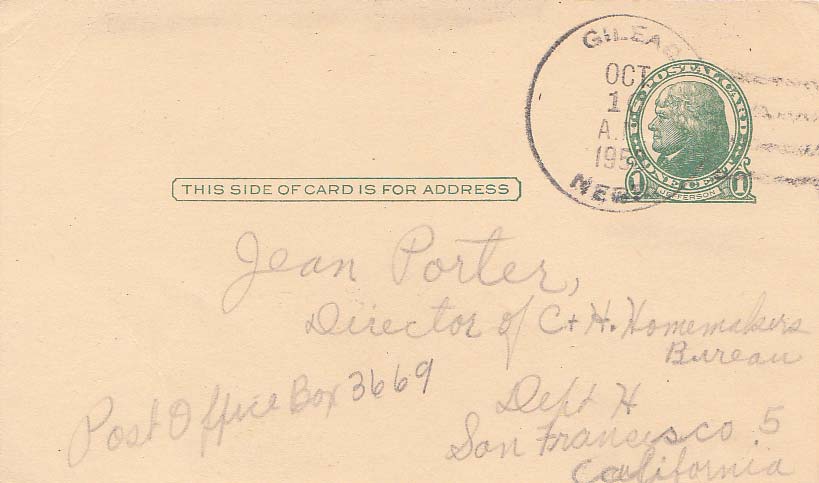 GILEAD
OCT
A.
195
U.S. POSTAL CARD
ONE CENT
1 JEFFERSON 1
THIS SIDE OF CARD IS FOR ADDRESS
Jean Porter,
Director of C+H. Homemakers
Bureau
Post Office Box 3669
Dept H
San Francisco 5
California